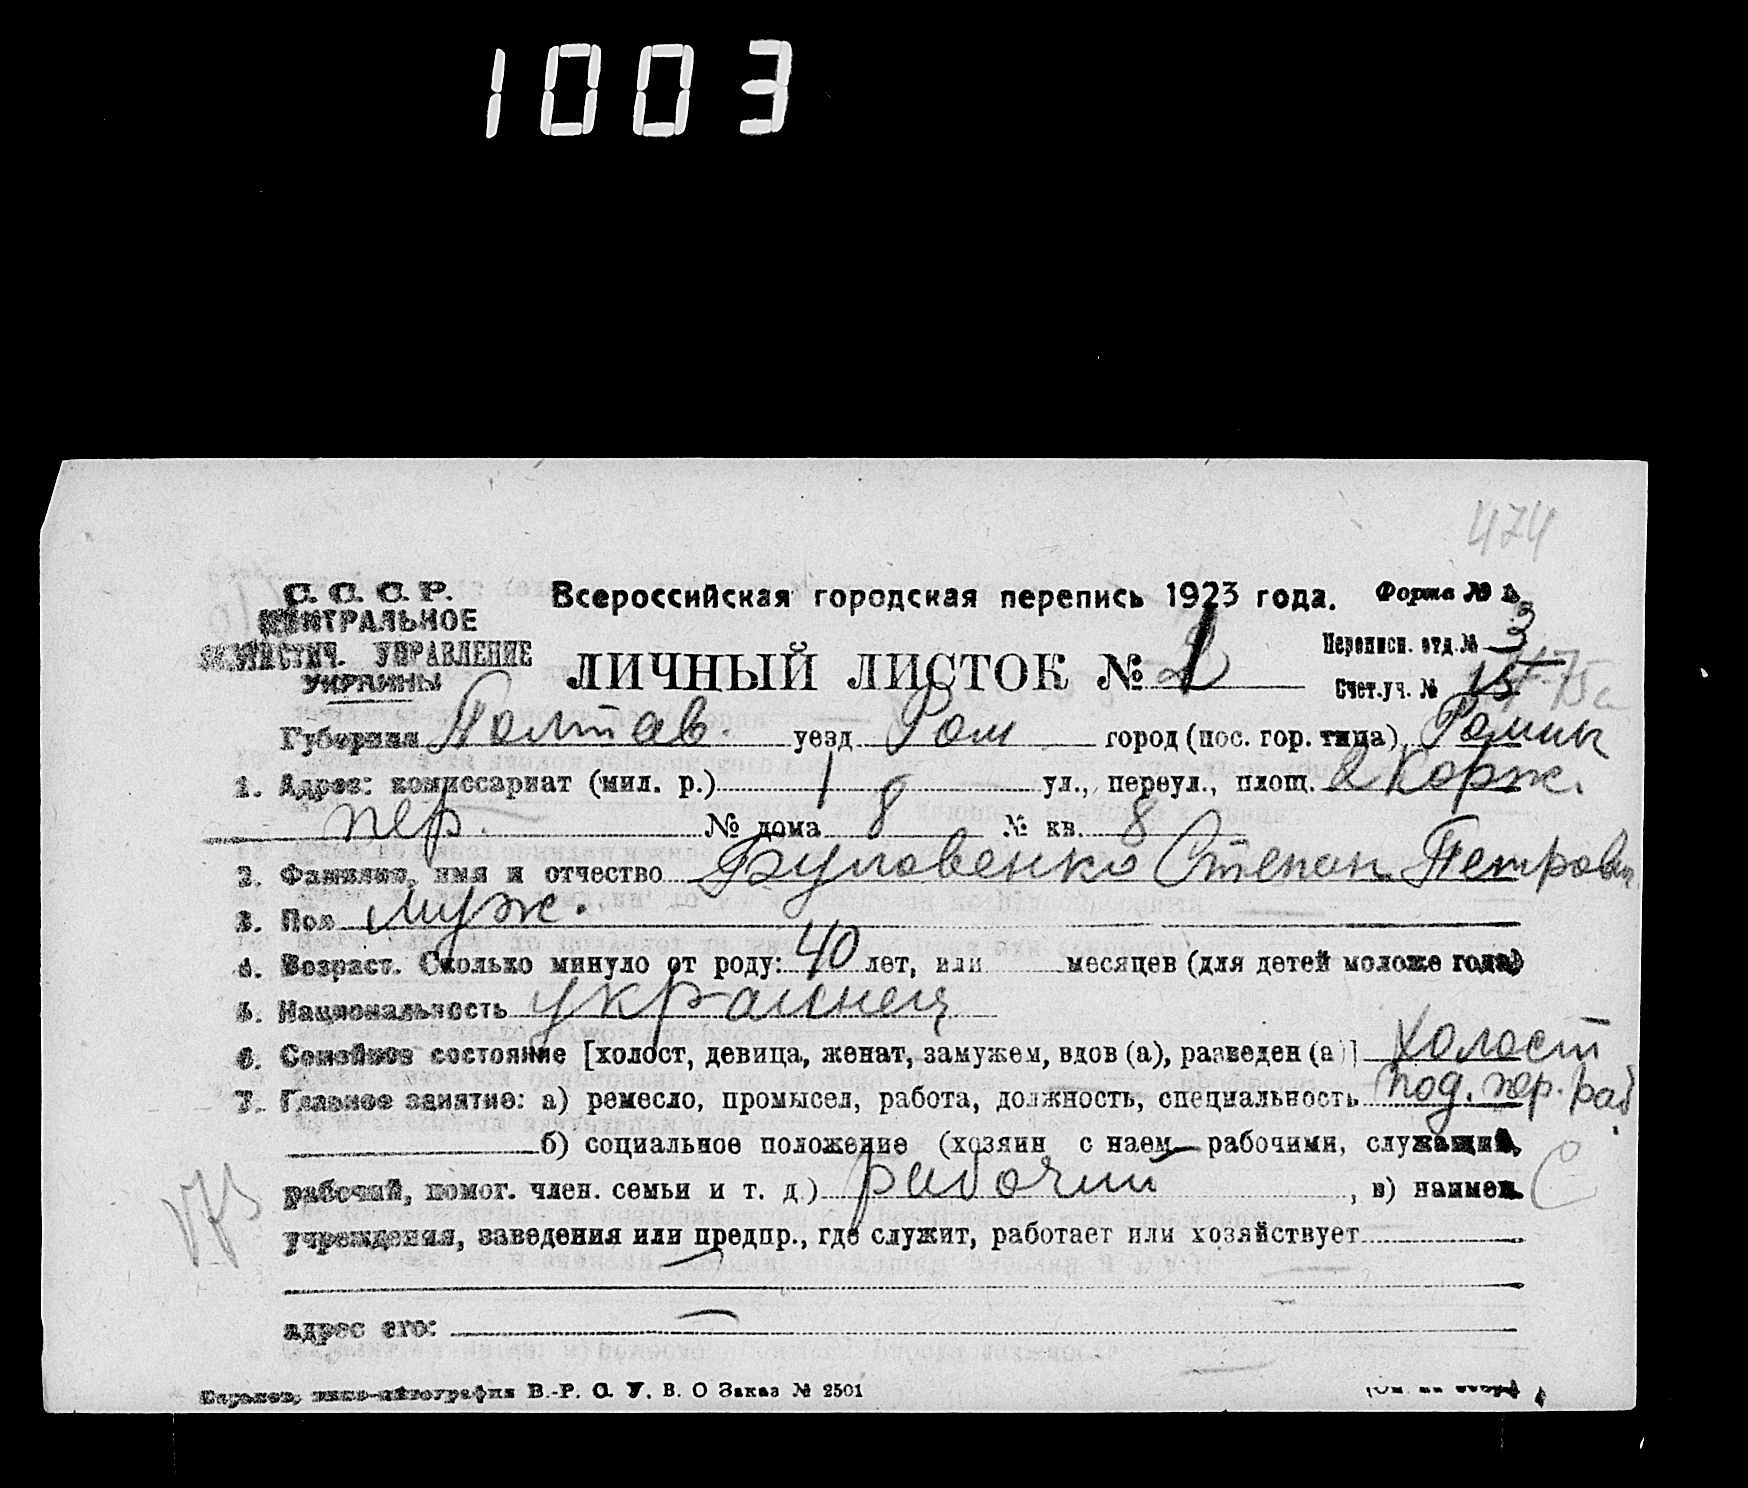 1003
474
С. С. С. Р. Всероссийская городская перепись 1923 года. Форма № 2
ЦЕНТРАЛЬНОЕ 3
СТАТИСТИЧ. УПРАВЛЕНИЕ ЛИЧНЫЙ ЛИСТОК № 1 Переписн. отд. № 3
УКРАИНЫ Счет. уч. № 15
Губерния Полтав. уезд Ром город (пос. гор. типа) Ромны
1. Адрес: комиссариат (мил. р.) 1 ул., переул., площ. 2 Корж.
пер. № дома 8 № кв. 8
2. Фамилия, имя и отчество Буловенко Степан Петрович
3. Пол муж.
4. Возраст. Сколько минуло от роду: 40 лет, или месяцев (для детей моложе года)
5. Национальность украинец
6. Семейное состояние [холост, девица, женат, замужем, вдов (а), разведен (а)] холост
7. Главное занятие: а) ремесло, промысел, работа, должность, специальность под. чер. раб.
б) социальное положение (хозяин с наем рабочими, служащий,
рабочий, помог. член. семьи и т. д.) рабочий, в) наимен. С
учреждения, заведения или предпр., где служит, работает или хозяйствует
адрес его:
Харьков, типо-литография В.-Р. С. У. В. О Заказ № 2501